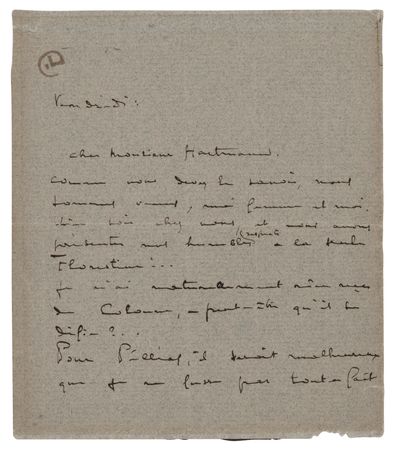 Vendredi :
cher Monsieur Hartmann.
Comme vous devez le savoir, nous
sommes venus, ma femme et moi.
chez vous et nous avons
présentés nos humbles respects à la seule
Florestine !...
Je n'ai naturellement rien reçu
de Colonne, - peut-être qu'il se
défie ?...
Pour Pelléas, il serait malheureux
que je ne fusse pas tout à fait